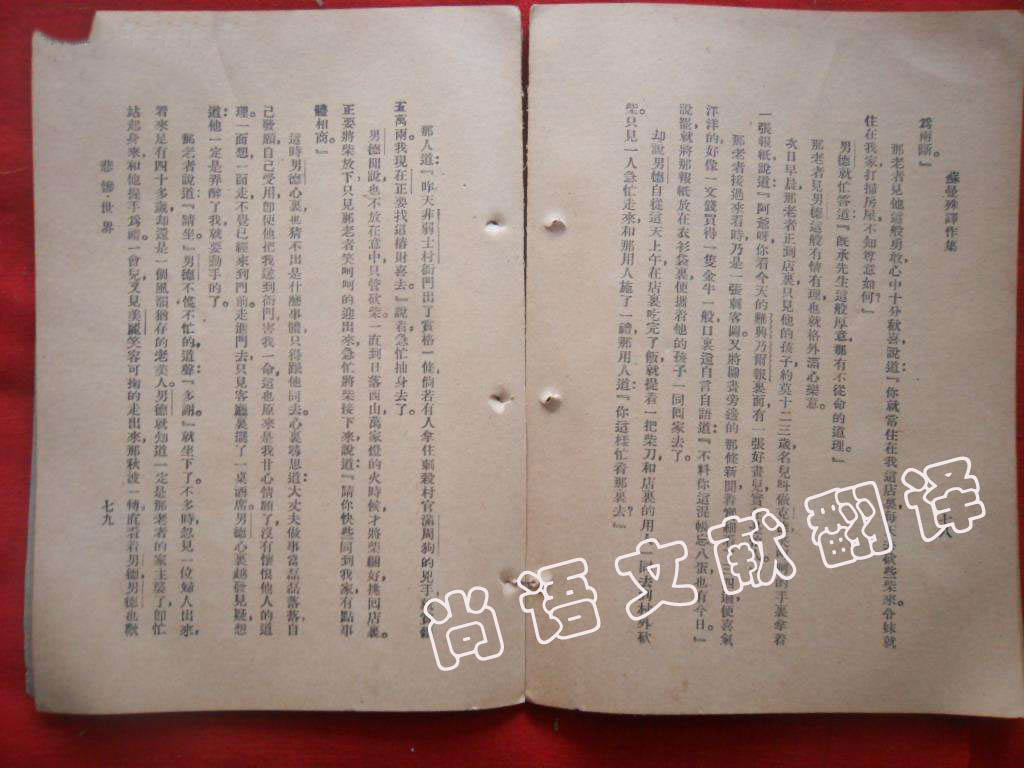 蘇曼殊譯作集
爲兩斷。』
那老者見他這般勇敢心中十分歡喜說道『你就當住在我這店裏每
住在我家打掃房屋不知尊意如何?』
男德就忙答道『旣承先生這般厚意那有不從命的道理』
那老者見男德這般有情有理也就格外滿心樂意。
次日早晨那老者正到店裏只見他的孩子約莫十二三歲名兒叫做克
一張報紙說道『阿爺呀你看今天的難興乃爾報裏面有一張好畫兒實
那老者接過來看時乃是一張刺客圖又將圖畫旁邊的那條新聞看
洋洋的好像一文錢買得一隻金牛一般口裏還自言自語道『不料你這混帳忘八蛋也有今日』
說罷就將那報紙放在衣衫袋裏便擕着他的孩子一同囘家去了。
却說男德自從這天上午在店裏吃完了飯就提着一把柴刀和店裏的用人一同去到村外砍
柴。只見一人急忙走來和那用人施了一禮那用人道『你這樣忙着那裏去?』
那人道『昨天非弱士村衙門出了賞格一條倘若有人拿住刺殺村官滿周狗的兇手
五萬兩。我現在正要找這樁財喜去』說着急忙抽身去了。
男德聞說也不放在意中只管砍柴。一直到日落西山萬家燈火的時候才將柴綑好挑囘店裏。
正要將柴放下只見那老者笑呵呵的迎出來急忙將柴接下來說道『請你快些同到我家有點事
體相商』
這時男德心裏也猜不出是什麼事體只得跟他同去心裏尋思道大丈夫做事當磊磊落落自
己發願自己受用卽使他把我送到衙門害我一命這也原來是我甘心情願了沒有懷恨他人的道
理一面想一面走不覺已經來到門前走進門去只見客廳裏擺了一桌酒席男德心裏越發見疑想
道他一定是弄醉了我就要動手的了。
那老者說道『請坐』男德不慌不忙的道聲『多謝』就坐下了。不多時忽見一位婦人出來
看來足有四十多歲却還是一個風韻猶存的老美人男德就知道一定是那老者的家主婆了卽忙
站起身來和他握手爲禮一會兒又見美麗笑容可掬的走出來那秋波一轉直看着男德男德也歡
悲慘世界
七九
尚语文献翻译